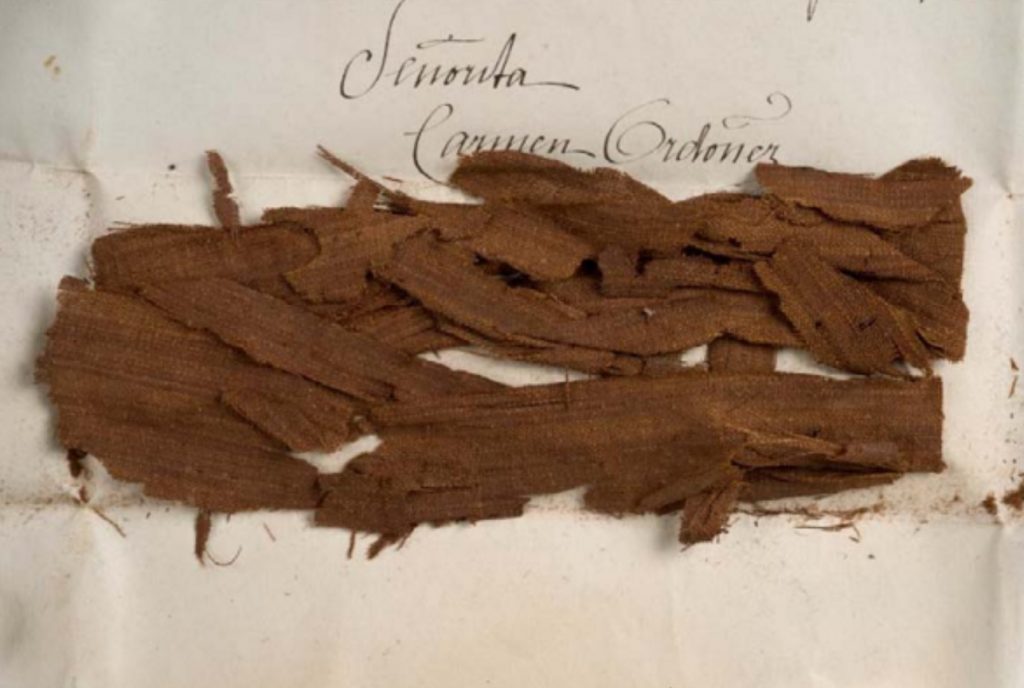 Señorita
Carmen Ordóñez